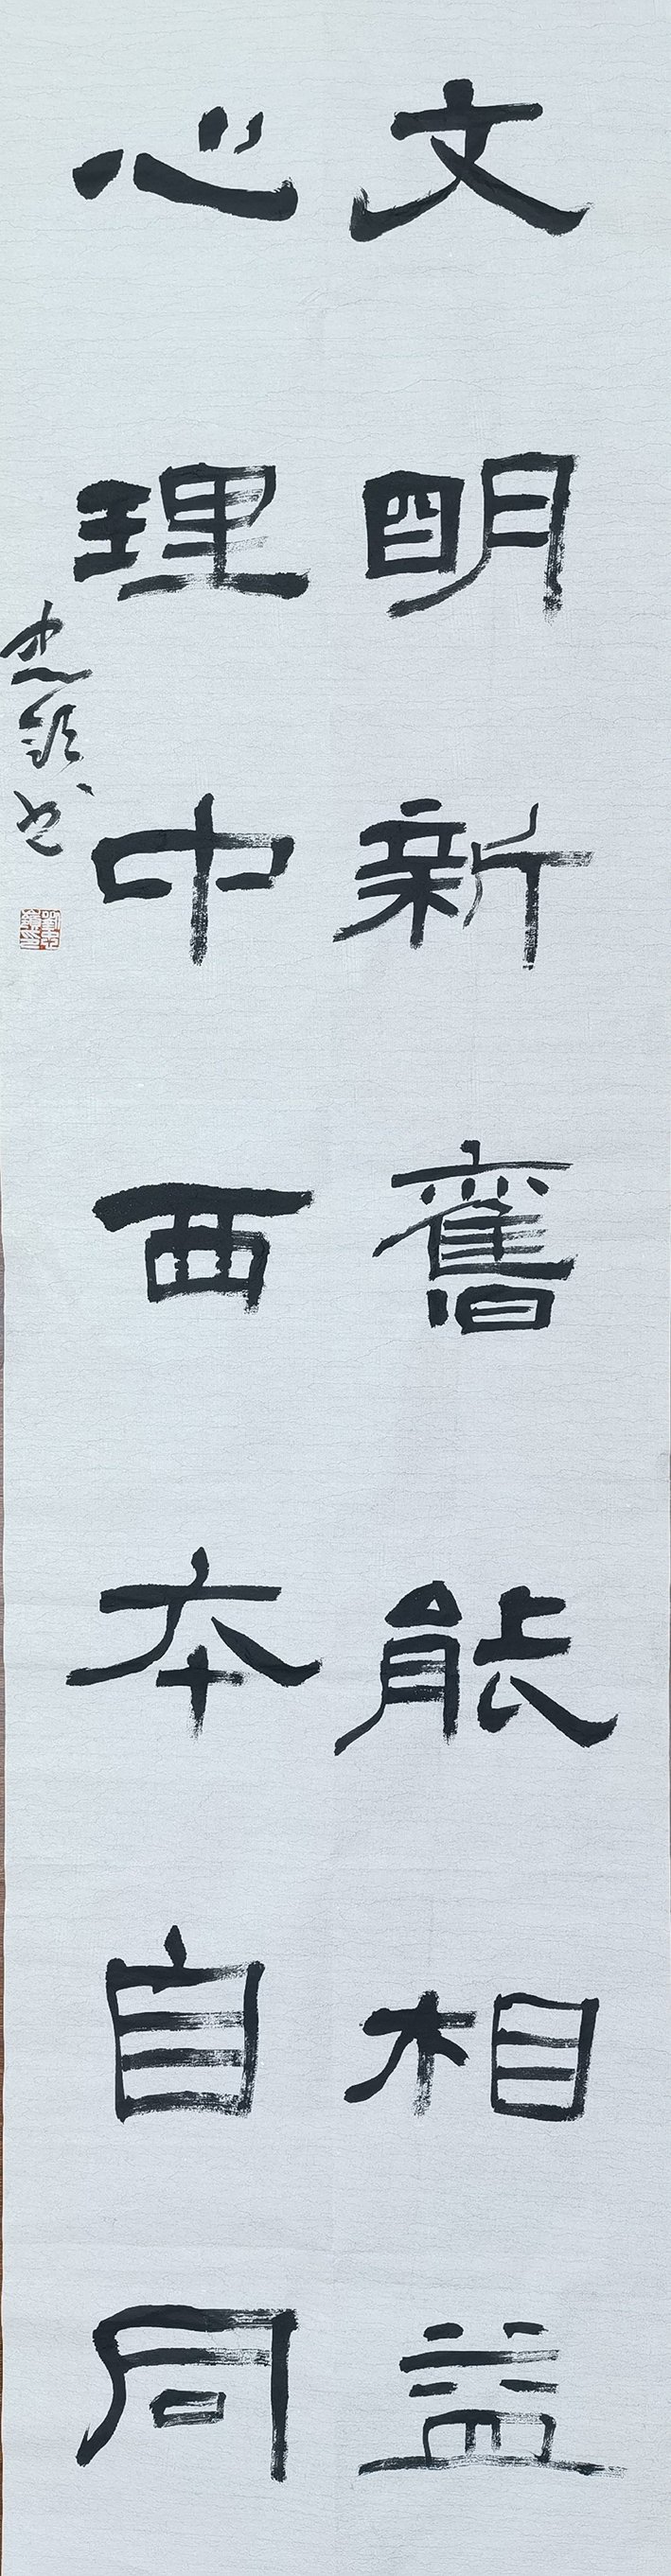 文明新舊能相益
心理中西本自同